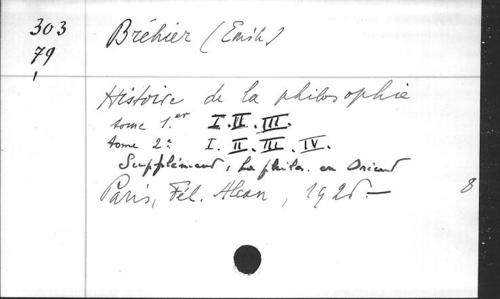 303
79
Bréhier (Emile)
Histoire de la philosophie
tome 1.er I. II. III.
tome 2e I. II. III. IV.
Supplément, La philos. en Orient
Paris, Fél. Alcan, 1926.—
8